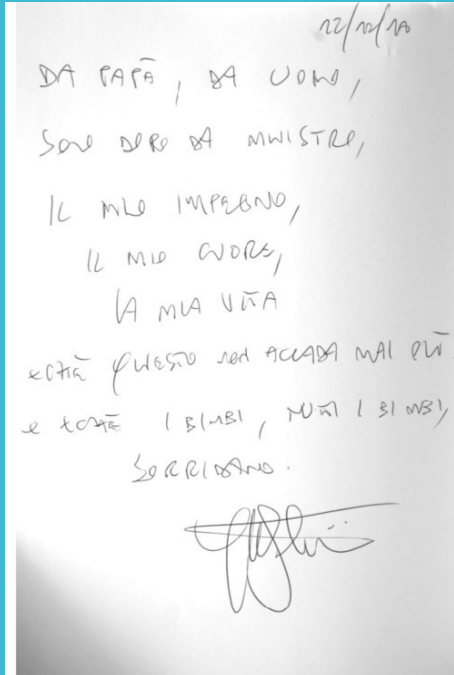 DA PAPÀ, DA UOMO,
SOLO DOPO DA MINISTRO,
IL MIO IMPEGNO,
IL MIO CUORE,
LA MIA VITA
QUESTO non ACCADA MAI PIÙ
e I BIMBI, TUTTI I BIMBI,
SORRIDANO.